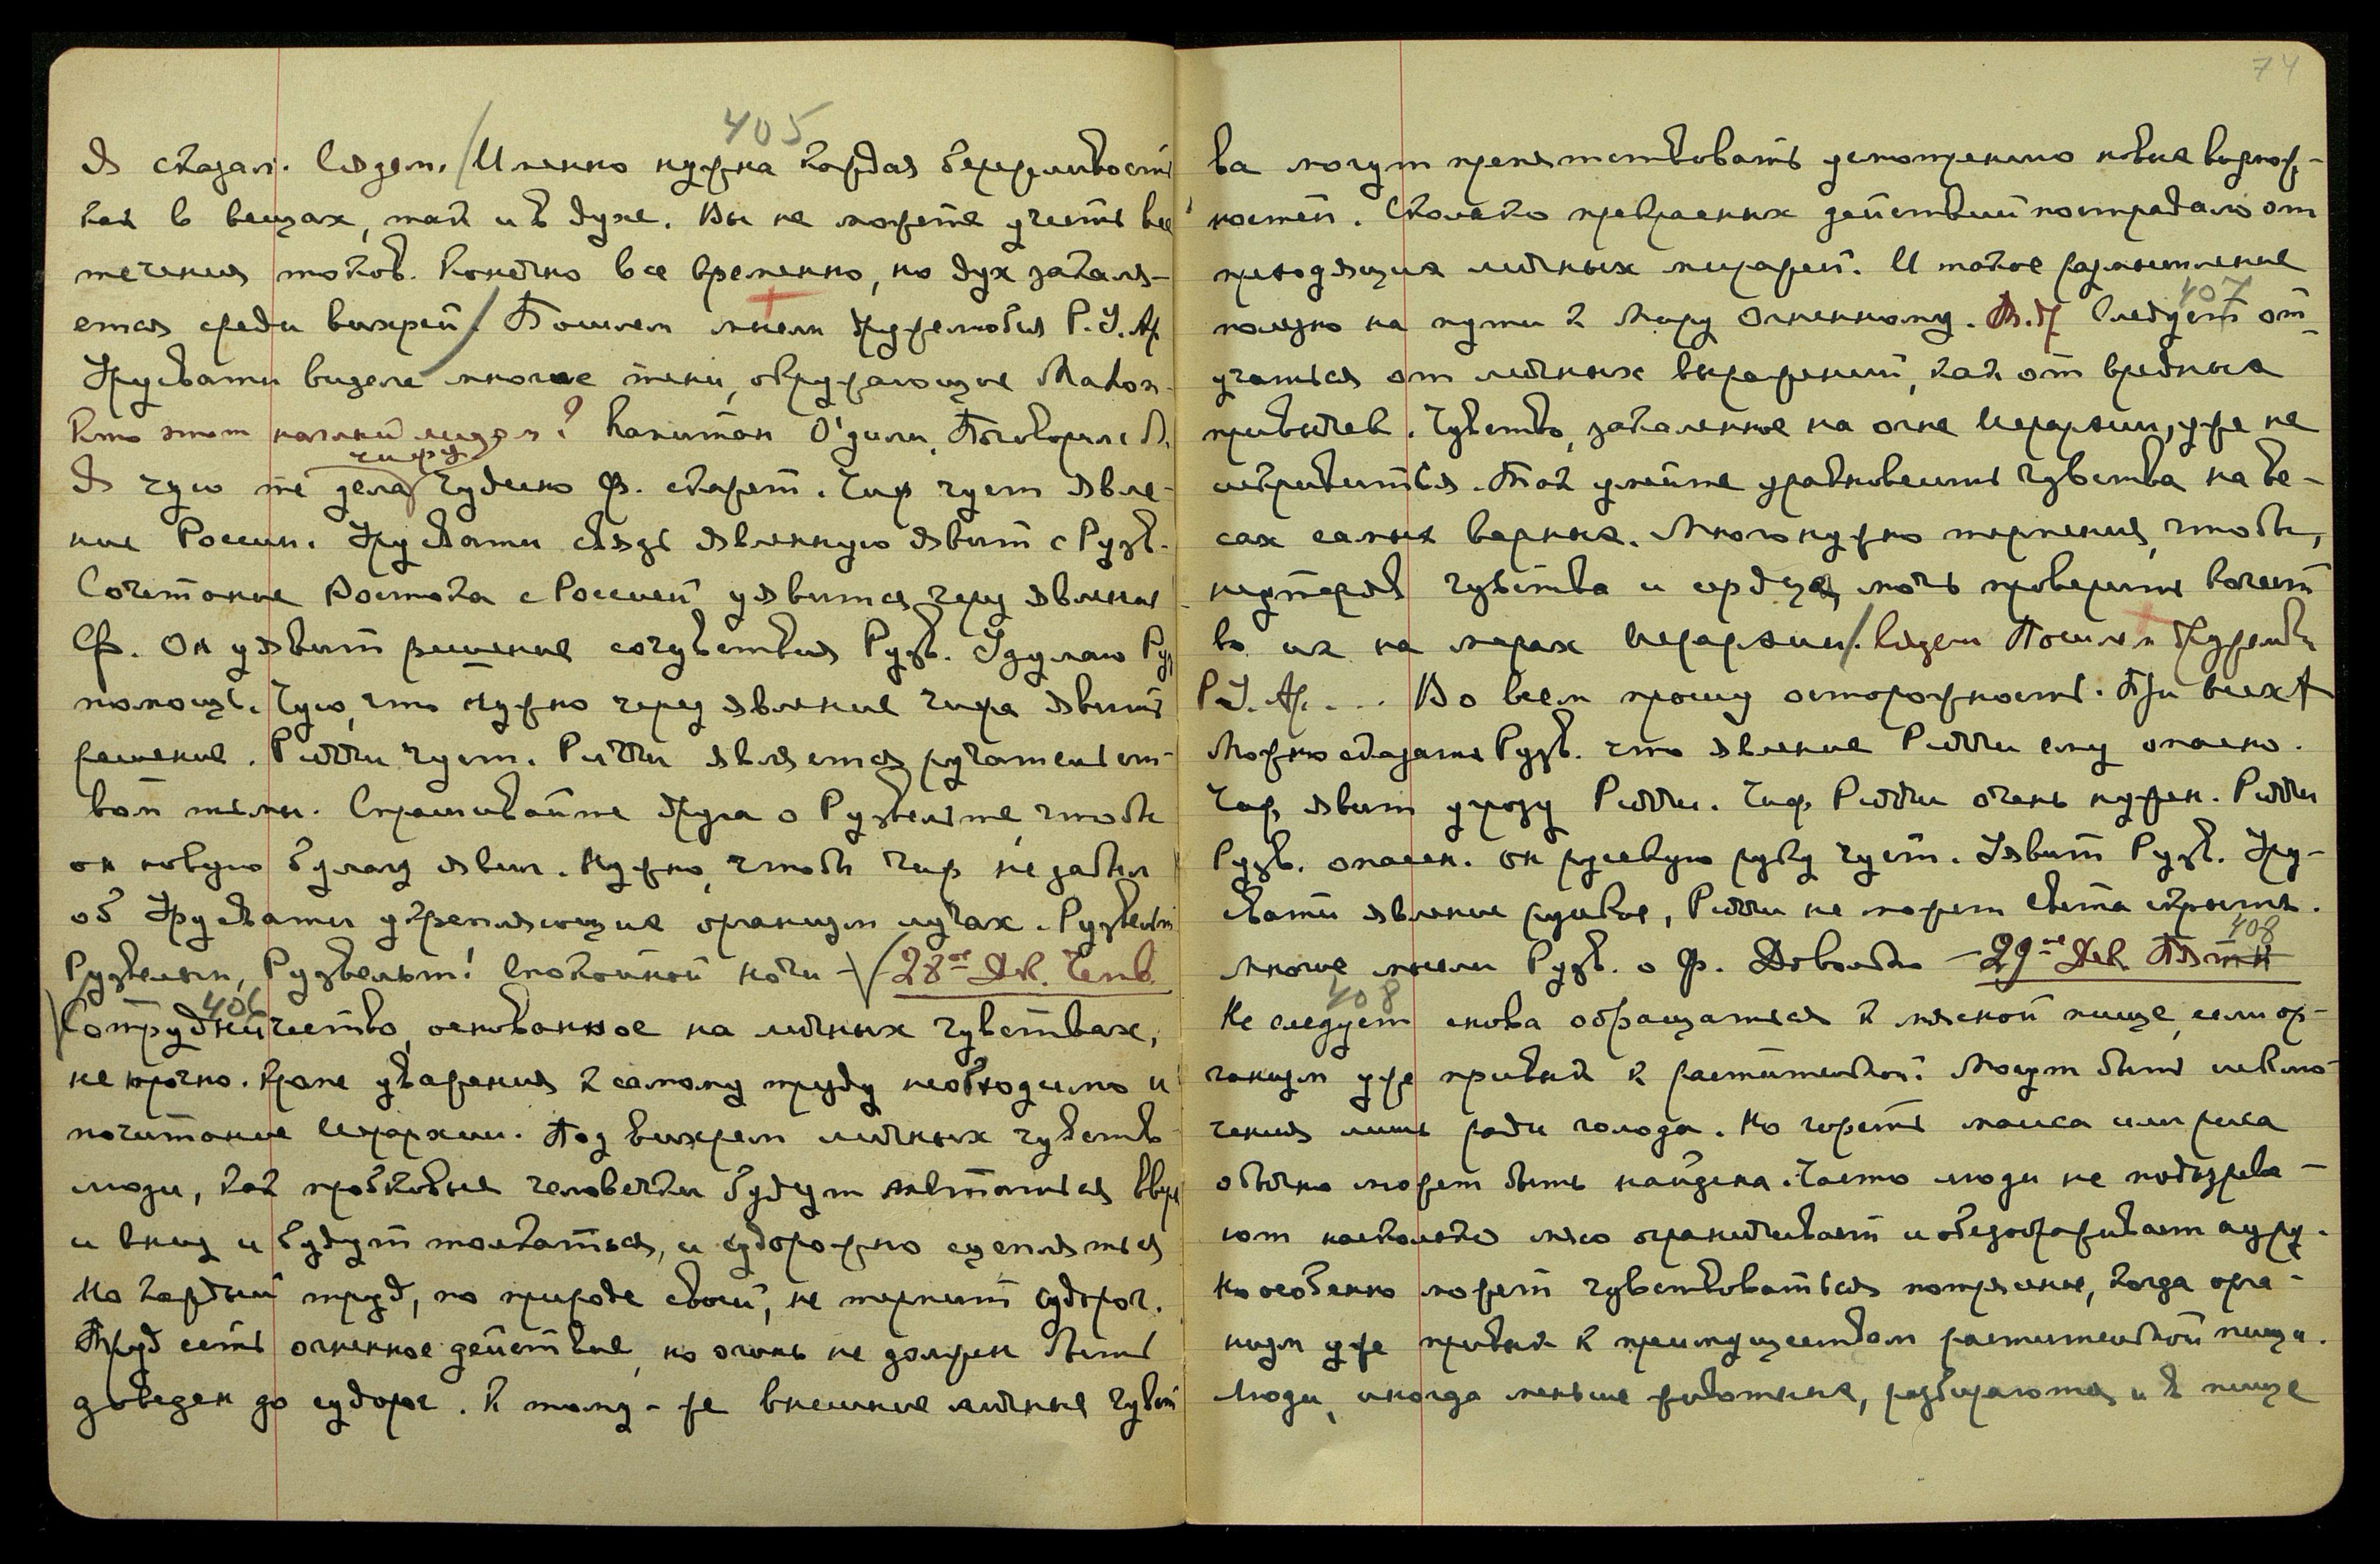 405
Я сказал. Сядем. / Именно нужна каждая бережливость
как в вещах, так и в духе. Вы не можете учесть все
течения токов. Конечно все временно, но дух закаля-
ется среди вихрей. / Пошлем мысли дружелюбия Р. У. Ар.
Урусвати видела многие тени, окружающие
Кто этот начали людям? Капитан О'дилл. Поговорил с В.
чиф
Я чую те дела чудесно Ф. скажет. Чиф чует явле-
ние России. Урусвати связь явленную явит с Рузв.
Сочетание Востока с Россией уявится через явление
Ф. Он уявит решение сочувствия Рузв. Удумаю Руз
помощь. Чую, что нужно через явление чифа явить
решение. Риддки чует. Риддки является ручательст-
вом тьмы. Спрашивайте Друга о Рузвельте, чтобы
он новую бумагу явил. Нужно, чтобы чиф не забыл
об Урусвати укрепляющие организм лучах. Рузвельт
Рузвельт, Рузвельт! Спокойной ночи – 28ое Дек. Четв.
406
Сотрудничество, основанное на личных чувствах,
не прочно. Кроме уважения к самому труду необходимо и
почитание Иерархии. Под вихрем личных чувств
люди, как пробковые человечки будут метаться вверх
и вниз и будут толкаться, и судорожно сцепляться
Но каждый труд, по природе своей, не терпит судорог.
Труд есть огненное действие, но огонь не должен быть
доведен до судорог. К тому-же внешние личные чувст
74
ва могут препятствовать усмотрению новые возмож-
ностей. Сколько прекрасных действий пострадало от
преходящих личных миражей. И такое размышление
407
полезно на пути к Миру Огненному. Следует от-
учаться от личных выражений, как от вредных
привычек. Чувство, закаленное на огне Иерархии, уже не
искривится. Так умейте уравновесить чувства на ве-
сах самых верных. Много нужно терпения, чтобы,
не утеряв чувства и сердца, мочь проверить качест
во их на мерах Иерархии. / Сядем Пошлем дружелюб
Р. У. Ар. ... Во всем прошу осторожность. При всех
Можно сказать Рузв. что явление Риддки ему опасно.
Чиф явит угрозу Риддки. Чиф Риддки очень нужен. Риддки
Рузв. опасен. Он руку чует. Уявит Рузв. Уру-
свати явление, Риддки не может света скрыть.
408
многие мысли Рузв. о Ф. Довольно – 29ое Дек. Пятн
408
Не следует снова обращаться к мясной пище, если ор-
ганизм уже привык к растительной. Могут быть исклю-
чения лишь ради голода. Но горсть маиса или риса
обычно может быть найдена. Часто люди не подозрева-
ют насколько мясо ограничивает и обезображивает ауру.
Но особенно может чувствоваться потрясение, когда орга-
низм уже привык к преимуществам растительной пищи.
Люди, иногда меньше животных, разбираются и в пище